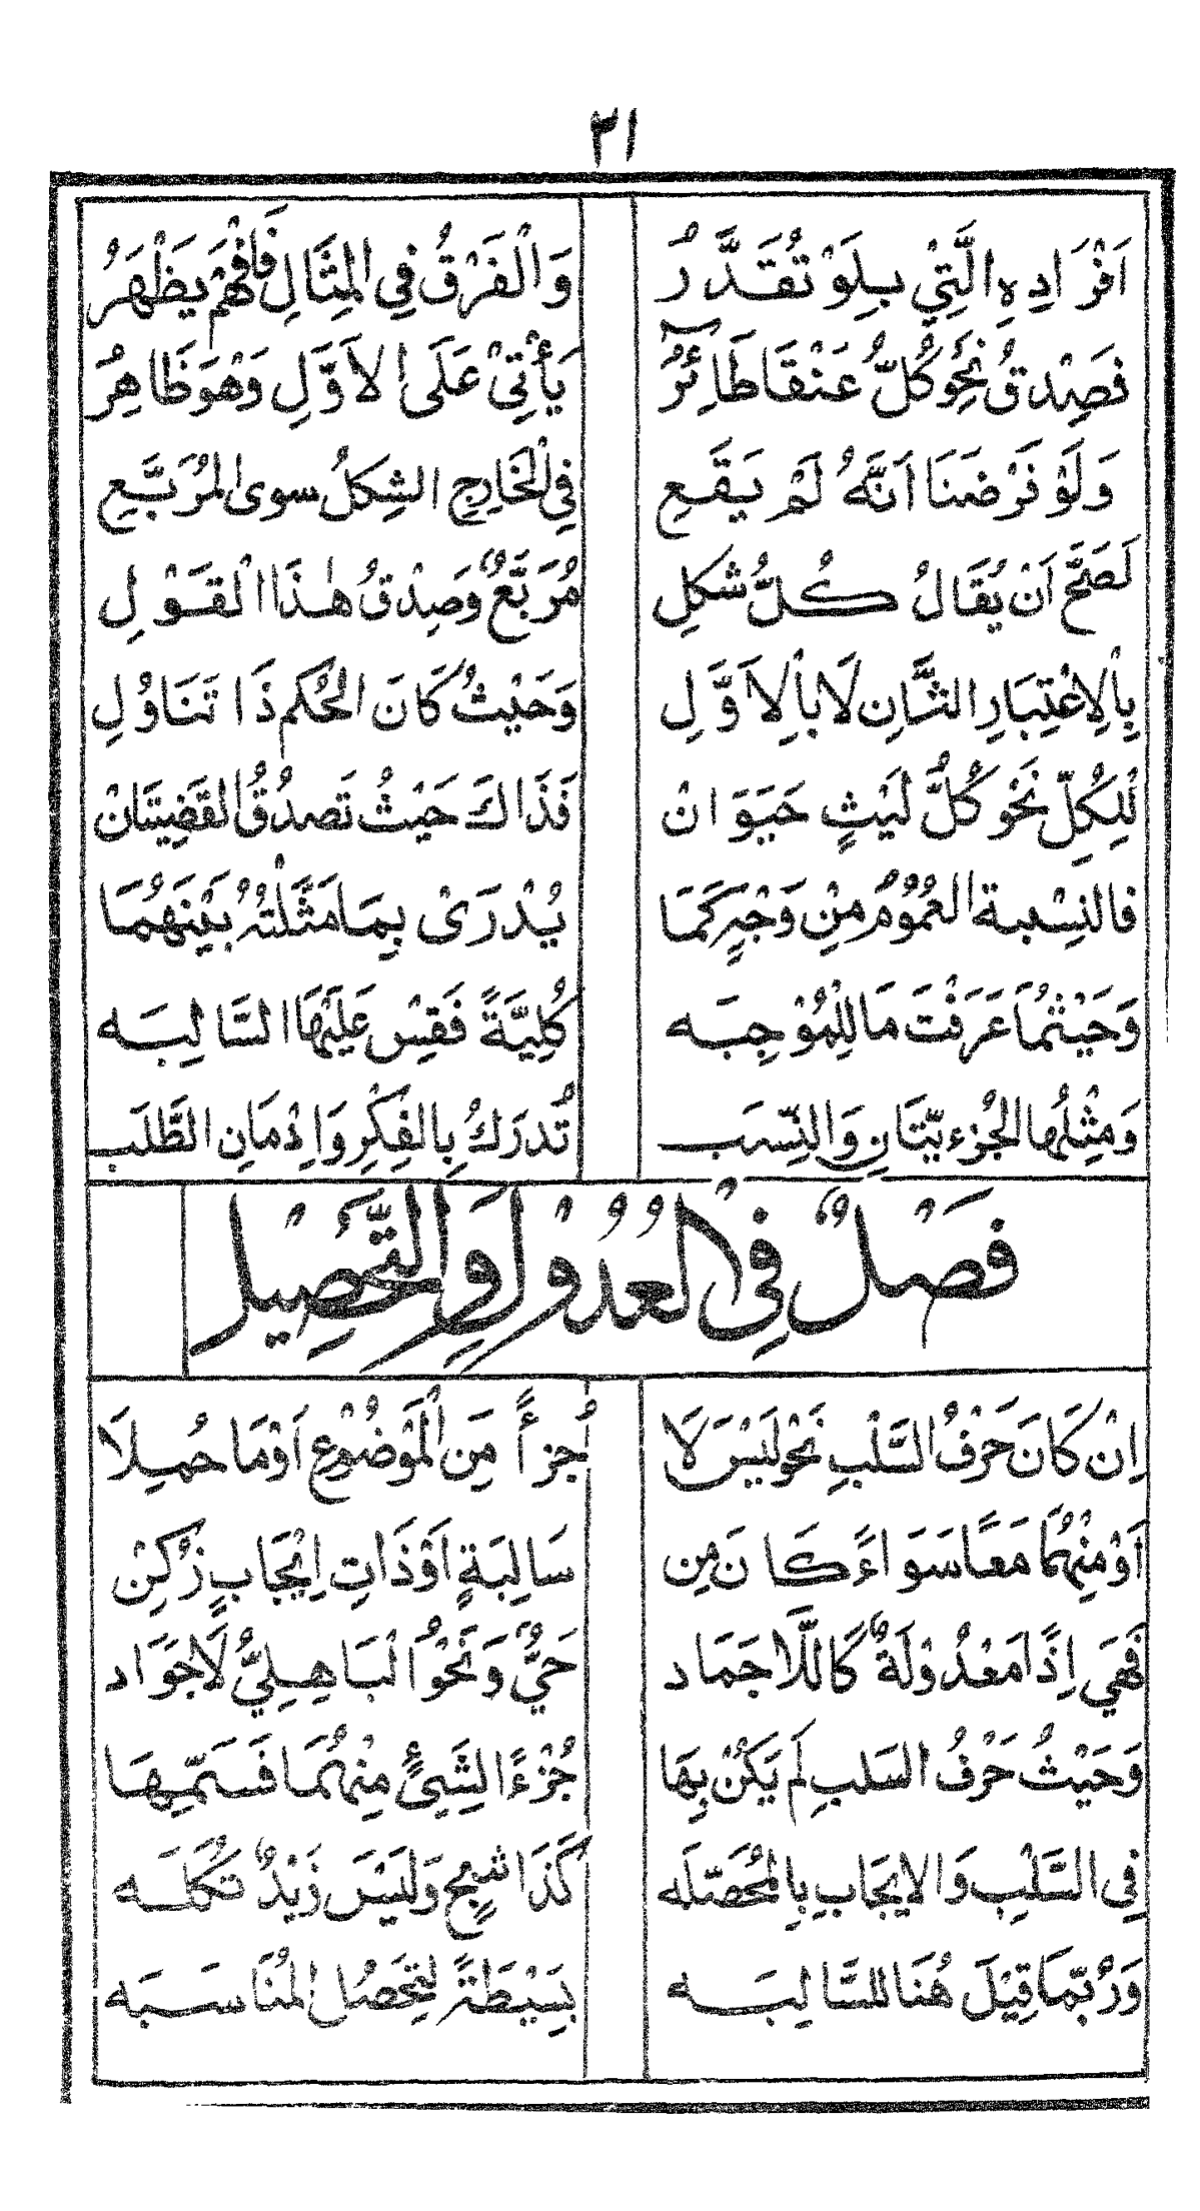 ٣١
اَفْرَادِهِ الَّتِيْ بِلَوْ تُقَدَّرُ وَالْفَرْقُ فِي الْمِثَالِ فَافْهَمْ يَظْهَرُ
فَصِدْقُ نَحْوِ كُلُّ عَنْقَا طَائِرُ يَأْتِيْ عَلَى الاَوَّلِ وَهْوَ ظَاهِرُ
وَلَوْ فَرَضْنَا اَنَّهُ لَمْ يَقَعِ فِي الْخَارِجِ الشِكلُ سوى الْمُرَبَّعِ
لَصَحَّ اَنْ يُقَالُ كُلُّ شكلِ مُرَبَّعٌ وَصِدْقُ هٰذَا الْقَوْلِ
بِاْلاِعْتِبَارِ الثَّانِ لَا بِاْلاَوَّلِ وَحَيْثُ كَانَ الْحُكْم ذَا تَنَاوُلِ
لِلْكُلِّ نَحْوُ كُلُّ لَيْثٍ حَيَوَانْ فَذَاكَ حَيْثُ تَصدُقُ القَضِيتَانْ
فالنِسْبة العُمُوْمُ مِنْ وَجْهٍ كَمَا يُدْرَىْ بِمَا مَثَّلْتُهُ بَيْنَهُمَا
وَحَيْثُمَا عَرَفْتَ مَا لِلْمُوْجِبَه كُلِيَّةً فَقِسْ عَلَيْهَا السَّالِبَه
وَمِثْلُها الجُزءِيّتَانِ وَالنِّسَب تُدرَكُ بِالفِكْرِ وَاِدْمَانِ الطَّلَب
فَصْلٌ فِي الْعُدُوْلِ وَالتَّحْصِيْلِ
اِنْ كَانَ حَرْفُ السَّلْبِ نَحْوُ لَيْسَ لَا جُزأً مِنَ الْمَوْضُوْعِ اَوْ مَا حُمِلَا
اَوْ مِنْهُمَا مَعًا سَوَاءً كَانَ مِن سَالِبَةٍ اَوْ ذَاتِ اِيْجَابٍ زُكِنْ
فَهِيَ اِذًا مَعْدُوْلَةٌ كَاللَّا جَمَاد حَيٌّ وَنَحْوُ الْبَاهِلِيُّ لَا جَوَاد
وَحَيْثُ حَرْفُ السَلبِ لَم يَكُنْ بِهَا جُزْءًا لِشَيْئٍ مِنْهُمَا فَسَمِّهَا
فِي السَّلْبِ وَالاِيجَابِ بِالمُحَصَّلَه كَذَا شجٍ وَلَيْسَ زَيْدٌ تُكْلَه
وَرُبّمَا قِيْلَ هُنَا للسَّالِبَه بَسِيْطَةً لِتَحْصُلَ الْمُنَاسَبَه